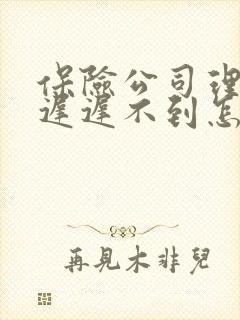 保險公司理
遲遲不到怎
再見木非兒